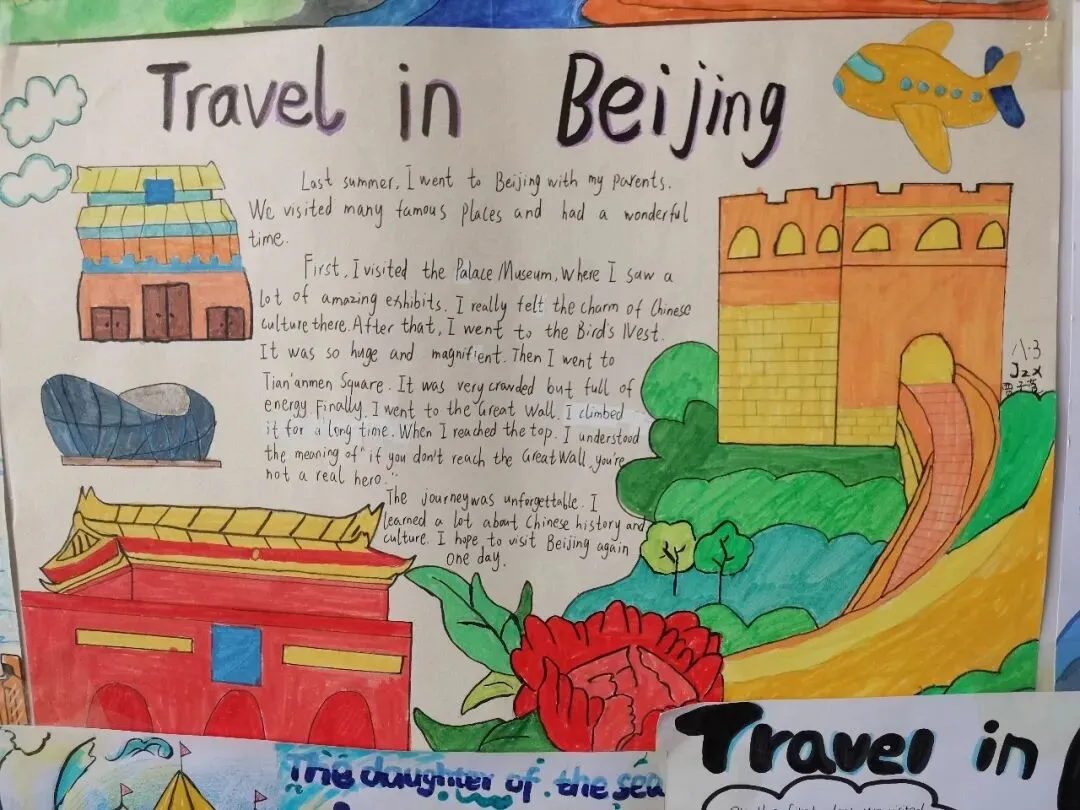 Travel in Beijing
Last summer, I went to Beijing with my parents.
We visited many famous places and had a wonderful
time.
First, I visited the Palace Museum, where I saw a
lot of amazing exhibits. I really felt the charm of Chinese
culture there. After that, I went to the Bird's Nest.
It was so huge and magnifient. Then I went to
Tian'anmen Square. It was very crowded but full of
energy Finally, I went to the Great Wall. I climbed
it for a long time. When I reached the top. I understood
the meaning of "if you don't reach the Great Wall, you're
not a real hero."
The journey was unforgettable. I
learned a lot about Chinese history and
culture. I hope to visit Beijing again
one day.
八.3
Jzx
The daughter of the sea
Travel in